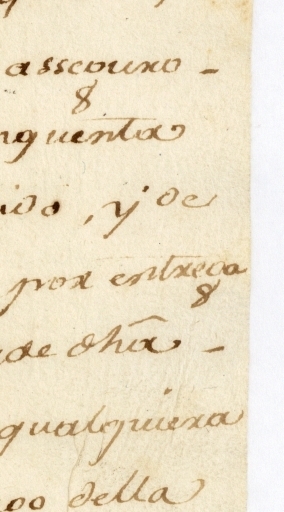 asseguro -
nquenta
ido, y de
por entrega
de dha -
qualquiera
go della